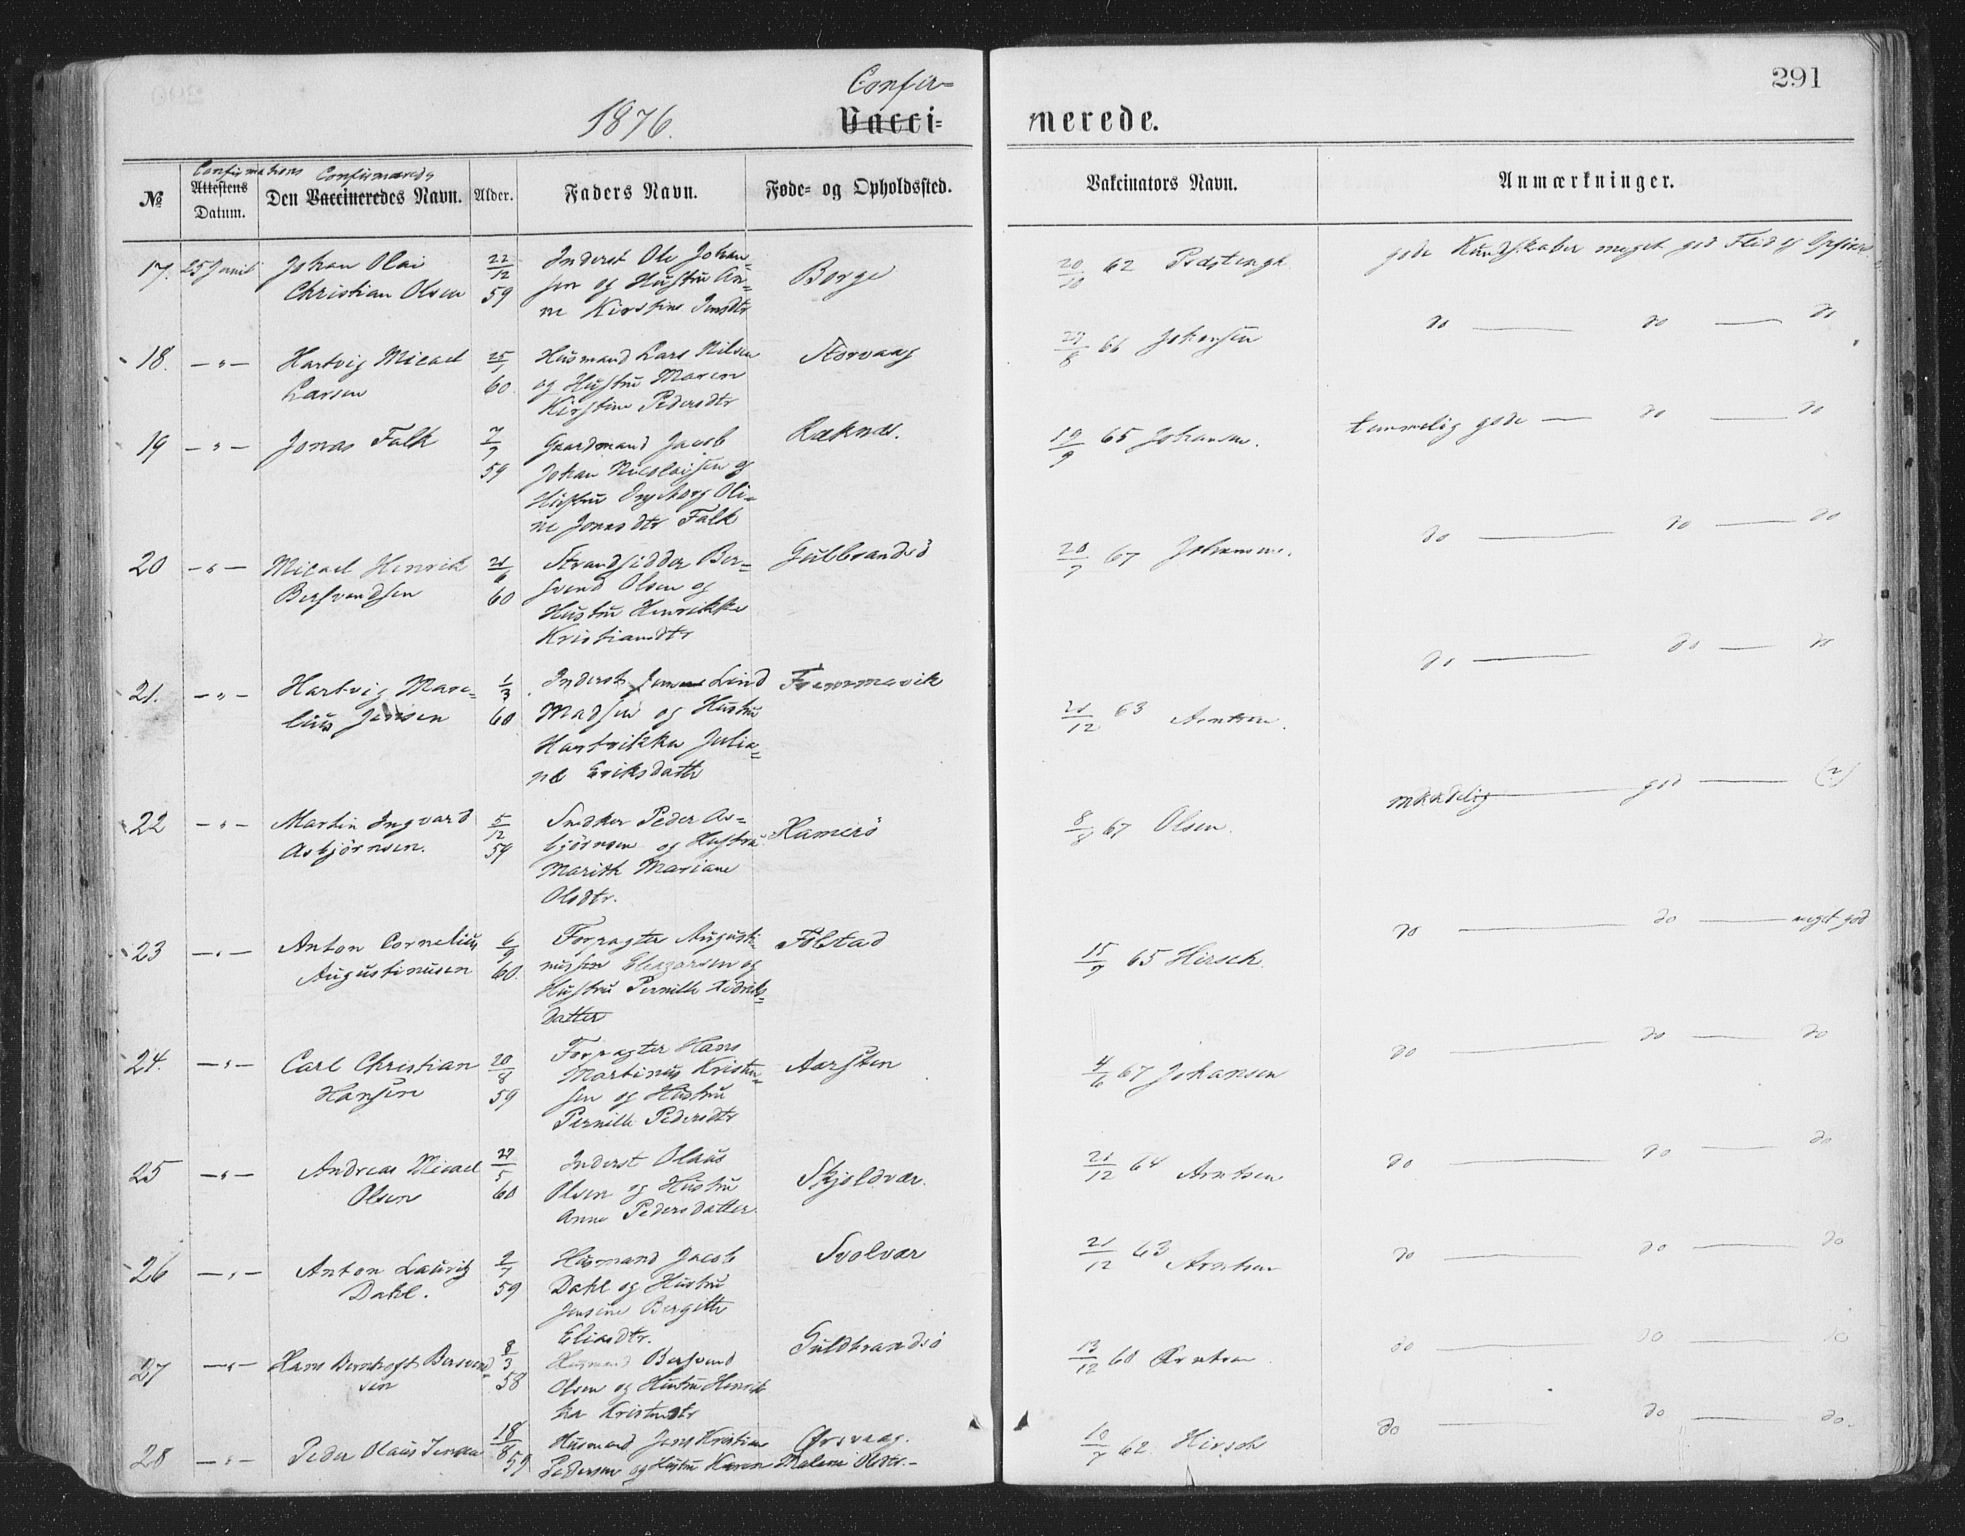 291
Confir-
1876. Vacci=merede.
Confirmations Confirmereds
№ Attestens Datum. Den Vaccineredes Navn. Alder. Faders Navn. Føde= og Opholdssted. Vakcinators Navn. Anmærkninger.
17. 25 Juni Johan Olai 22/12 Inderst Ole Johan= Borge 62 gode Kundskaber meget god Flid og
Christian Olsen 59 sen og Hustru An=
ne Kirstine Jensdtr
18. —〃— Hartvig Micael 25/1 Husmand Lars Nilsen Storvaag 66 Johansen do — do — do
Larsen 60. og Hustru Maren
Kirstine Pedersdtr
19 —〃— Jonas Falk 7/7 Gaardmand Jacob Læknæs. 19/9 65 Johansen. temmelig gode — do — do
59 Johan Nicolaysen og
Hustru Ingeborg Oli=
ne Jonasdtr Falk
20 —〃— Micael Henrik 21/6 Strandsidder Ber= Gulbrandsö 67 Johansen. do — do — do
Bersvendsen 60 svend Olsen og
Hustru Henrikke
Kristiansdtr
21. —〃— Hartvig Marc= 1/3 Inderst Lind Fremmervik 21/12 63 Arntsen. do — do — do
lius Jensen 60 Madsen og Hustru
Hartvikka Julia=
ne Eriksdatter
22 —〃— Martin Ingvard 5/12 Snedker Peder As= Hamerö 67 Olsen. maadelig — god — (?)
Asbjørnsen. 59 bjørnsen og Hustru
Marith Mariane
Olsdtr.
23 —〃— Anton Cornelius 6/9 Forpagter Augusti= Fölstad 15/9 65 Hirsch. do — do — meget god
Augustinusen 60. nussen Eleazarsen og
Hustru Pernille
datter
24. —〃— Carl Christian 20/8 Forpagter Hans Aarsten 4/6 67 Johansen do — do — do
Hansen 59 Martinus Kristen=
sen og Hustru
Pernille Pedersdtr
25 —〃— Andreas Micael 27/5 Inderst Olaus Skjoldvær. 21/12 64 Arntsen do — do — do
Olsen 60 Olsen og Hustru
Anne Pedersdatter
26 —〃— Anton Lauritz 2/7 Husmand Jacob Svolvær 21/12 63 Arntsen do — do — do
Dahl. 59 Dahl og Hustru
Jensine Bergitte
Eliasdtr.
27 —〃— Hans Berntoft Bersvend= 8/3 Husmand Bersvend Guldbrandsö 13/12 60 Arntsen. do — do — do
sen 58 Olsen og Hustru Henrik
ka Kristensdtr
28 —〃— Peder Olaus Jensen 18/8 Husmand Jens Kristian Ørsvaag. 10/7 62. Hirsch do — do — do.
59 Pedersen og Hustru Karen Maline Olsdtr.—